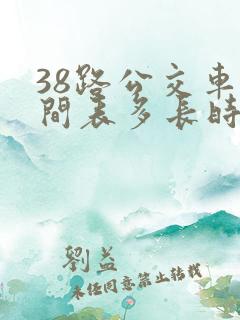 38路公交車
間表多長時
劉益
未经同意禁止转载